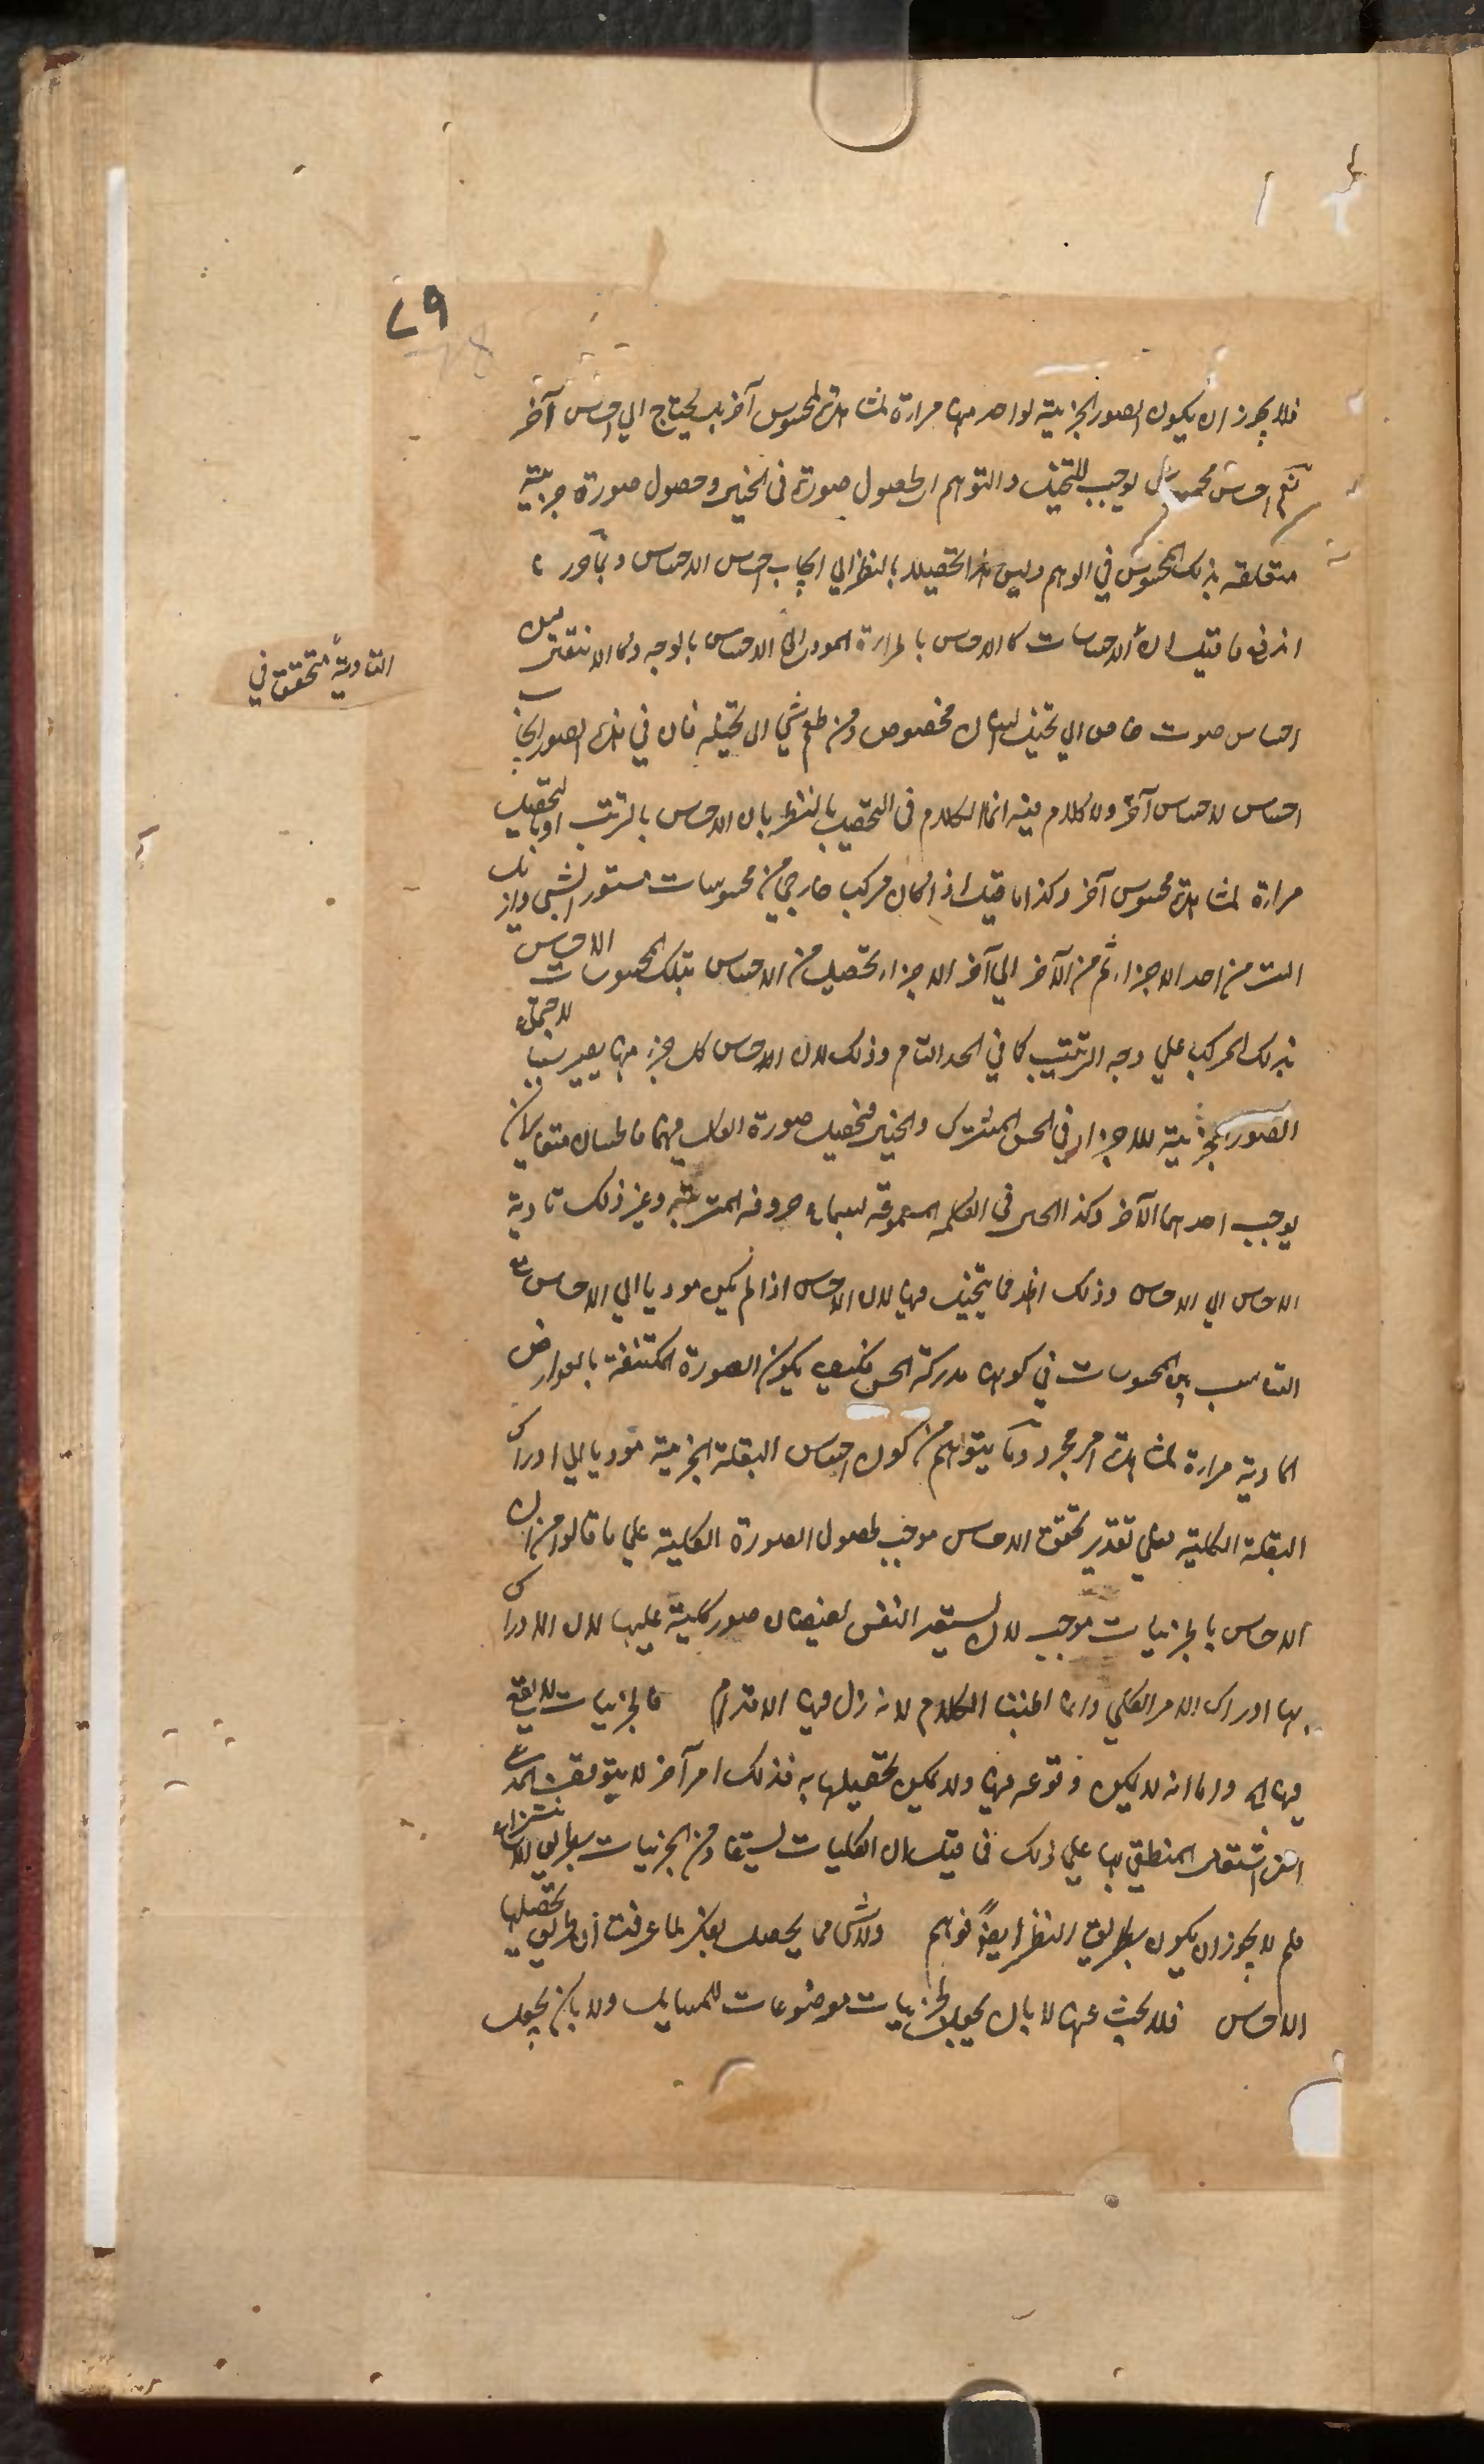 ٧٩
فلا يجوز ان يكون الصور الجزئية لواحد منها مرآة لمشاهدة المحسوس آخر بل يحتاج الى احساس آخر
نعم احساس محسوس يوجب التخيل والتوهم اى حصول صورة فى الخيال وحصول صورة جزئية
متعلقة بذلك المحسوس في الوهم وليس هذا تحصيلا بالنظر الى ايجاب احساس الاحساس وبما حررنا
اندفع ما قيل ان الاحساسات كالاحساس بالحرارة المودى الى الاحساس بالوجه وكالانتقال من
التادية متحقق في
احساس صوت خاص الى تخيل انسان مخصوص ومن طعم شئ الى تخيله فان في هذه الصور ايجاب
احساس لاحساس آخر ولا كلام فيه انما الكلام فى التحصيل بالنظر بان الاحساس بالترتيب او بتحصيل
مرآة لمشاهدة محسوس آخر وكذا ما قيل اذا كان مركب خارجي من محسوسات مستور الشئ وازيل
الستر من احد الاجزاء ثم من الآخر الى آخر الاجزاء تحصيل من الاحساس بتلك المحسوسات الاحساس
بذلك المركب على وجه الترتيب كما في الحد التام وذلك لان الاحساس كل جزء منها يصير سببا لاجتماع
الصور الجزئية للاجزاء في الحس المشترك والخيال فتحصيل صورة الكل فيهما فاحساسان متقابلان
يوجب احدهما الآخر وكذا الحس فى الكلمة المسموعة بسماع حروفه المترتبة وغير ذلك تادية
الاحساس الى الاحساس وذلك اظهر مما يتخيل فيها لان الاحساس اذا لم يكن موديا الى الاحساس مع
التناسب بين المحسوسات في كونها مدركة الحس فكيف يكون الصورة المكتنفة بالعوارض
المادية مرآة لمشاهدة امر مجرد وما يتوهم من كون احساس البقلة الجزئية موديا الى ادراك
البقلة الكلية فعلى تقدير تحقق الاحساس موجب لحصول الصورة الكلية على ما قالوا من ان
الاحساس بالجزئيات موجب لان يستعد النفس لفيضان صور كلية عليها لا ان الادراك
بها ادراك الامر الكلي وانما اطنبنا الكلام لانه زل فيها الاقدام فالجزئيات لا يقع
فيها الخ واما انه لا يكون وقوعه فيها ولا يمكن تحصيلها به فذلك امر آخر لا يتوقف
اشتغال المنطقي بها على ذلك فما قيل ان الكليات يستفاد من الجزئيات بطريق الانتزاع
فلم لا يجوز ان يكون بطريق النظر ايضًا فوهم ولا شئ مما يحصل بفكر لما عرفت ان طريق تحصيلها
الاحساس فلا بحث عنها لا بان يجعل الجزئيات موضوعات للمسايل ولا بان يجعل